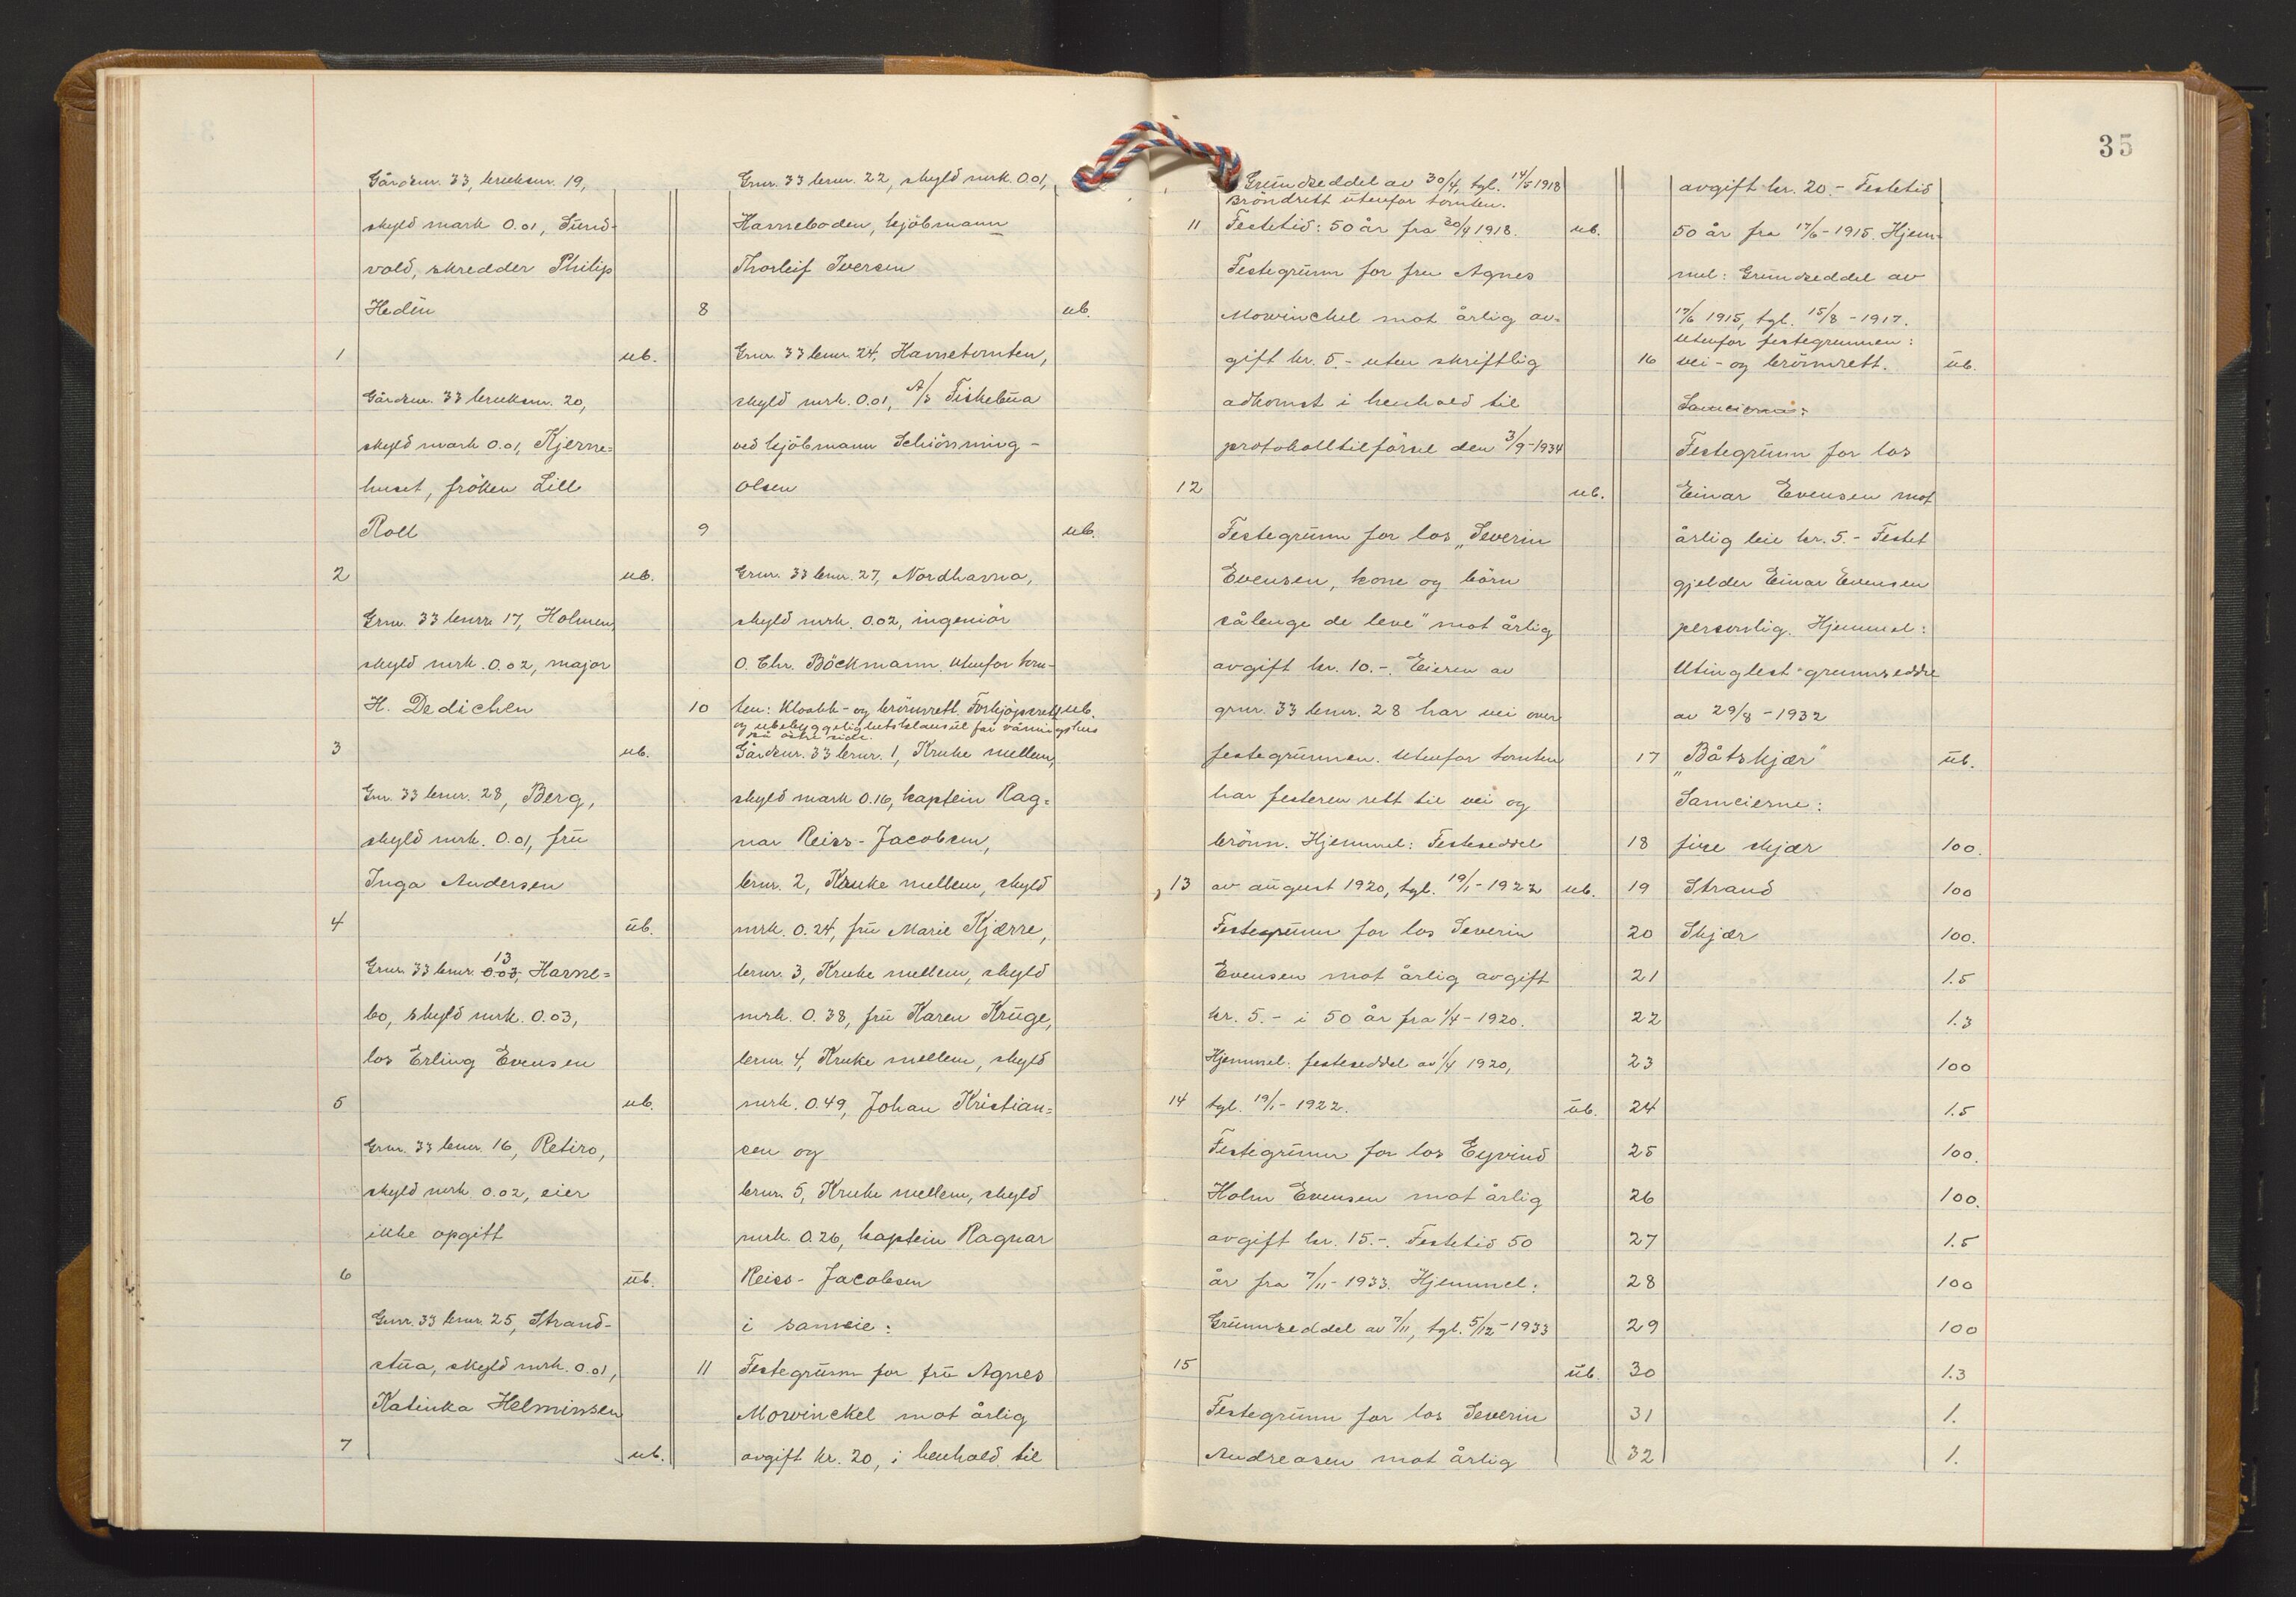 35
Gårdsnr. 33, bruksnr. 19,
skyld mark 0.01, Sund-
vold, skredder Philip
Hedin
1 ub.
Gårdsnr. 33 bruksnr. 20,
skyld mark 0.01, Kjerne=
huset, fröken Lill
Roll
2 ub.
Grnr. 33 brnr. 17, Holmen,
skyld mrk. 0.02, major
H. Dedichen
3 ub.
Gnr. 33 brnr. 28, Berg,
skyld mrk. 0.01, frü
Inga Andersen
4 üb.
13
Grnr. 33 brnr. 0.03, Havne=
bo, skyld mrk. 0.03,
los Erling Evensen
5 ub.
Grnr. 33 brnr. 16, Retiro,
skyld mrk. 0.02, eier
ikke opgitt
6 üb.
Gnr. 33 brnr. 25, Strand-
stüa, skyld mrk. 0.01,
Katinka Helminsen
7 ub.
Grnr. 33 brnr. 22, skyld mrk. 0.01,
Havneboden, kjöbmann
Thorleif Iversen
8 ub.
Grnr. 33 brnr. 24, Havnetomten,
skyld mrk. 0.01, A/S Fiskebüa
ved kjöbmann Schiönning-
Olsen
9 ub.
Grnr. 33 brnr. 27, Nordhavna,
skyld mrk. 0.02, ingeniör
O. Chr. Böckmann. Utenfor tom-
10 ten: Kloakk- og brönnrett. Forkjöpsrett ub.
og ubebyggelighetsklausül for våningshus
på östre side.
Gårdsnr. 33 brnr. 1, Kruke mellem,
skyld mark 0.16, kaptein Rag=
nar Reiss-Jacobsen,
brnr. 2, Kruke mellem, skyld
mrk. 0.24, frü Marie Kjærre,
brnr. 3, Kruke mellem, skyld
mrk. 0.38, frü Karen Krüge,
brnr. 4, Kruke mellem, skyld
mrk. 0.49, Johan Kristian=
sen og
brnr. 5, Kruke mellem, skyld
mrk. 0.26, kaptein Ragnar
Reiss-Jacobsen
i sameie:
11 Festegrünn for frü Agnes
Mowinckel mot årlig
avgift kr. 20, i henhold til
Gründseddel av 30/4, tgl. 14/5 1918
Bröndrett ütenfor tomten.
11 Festetid: 50 år fra 30/4 1918. ub.
Festegrünn for fru Agnes
Mowinckel mot årlig av=
gift kr. 5.- uten skriftlig
adkomst i henhold til
protokolltilförsel den 3/9-1934
12 ub.
Festegrünn for los „Severin
Evensen, kone og börn
sålenge de leve" mot årlig
avgift kr. 10.-. Eieren av
grnr. 33 brnr. 28 har vei over
festegrünnen. Utenfor tomten
har festeren rett til vei og
brönn. Hjemmel: Festeseddel
13 av aügust 1920, tgl. 19/1-1922 ub.
Festegrünn for los Severin
Evensen mot årlig avgift
kr. 5.- i 50 år fra 1/4-1920.
Hjemmel: festeseddel av 1/4 1920,
14 tgl. 19/1-1922. üb.
Festegrünn for los Eyvind
Holm Evensen mot årlig
avgift kr. 15.-. Festetid 50
år fra 7/11-1933. Hjemmel:
Grünnseddel av 7/11, tgl. 5/12-1933
15 üb.
Festegrünn for los Severin
Andreasen mot årlig
avgift kr. 20.- Festetid
50 år fra 17/6-1915. Hjem-
mel: Gründseddel av
17/6 1915, tgl. 15/8-1917.
Utenfor festegrunnen:
16 vei- og brönnrett. üb.
Sameierne:
Festegrünn for los
Einar Evensen mot
årlig leie kr. 5.- Festet
gjelder Einar Evensen
personlig. Hjemmel:
Utinglest grunnseddel
av 29/8-1932
17 „Båtskjær" üb.
Sameierne:
18 fire skjær 100.
19 Strand 100
20 Skjær 100.
21 1.5
22 1.3
23 100
24 1.5
25 100.
26 100.
27 1.5
28 100
29 100
30 1.3
31 1.
32 1.